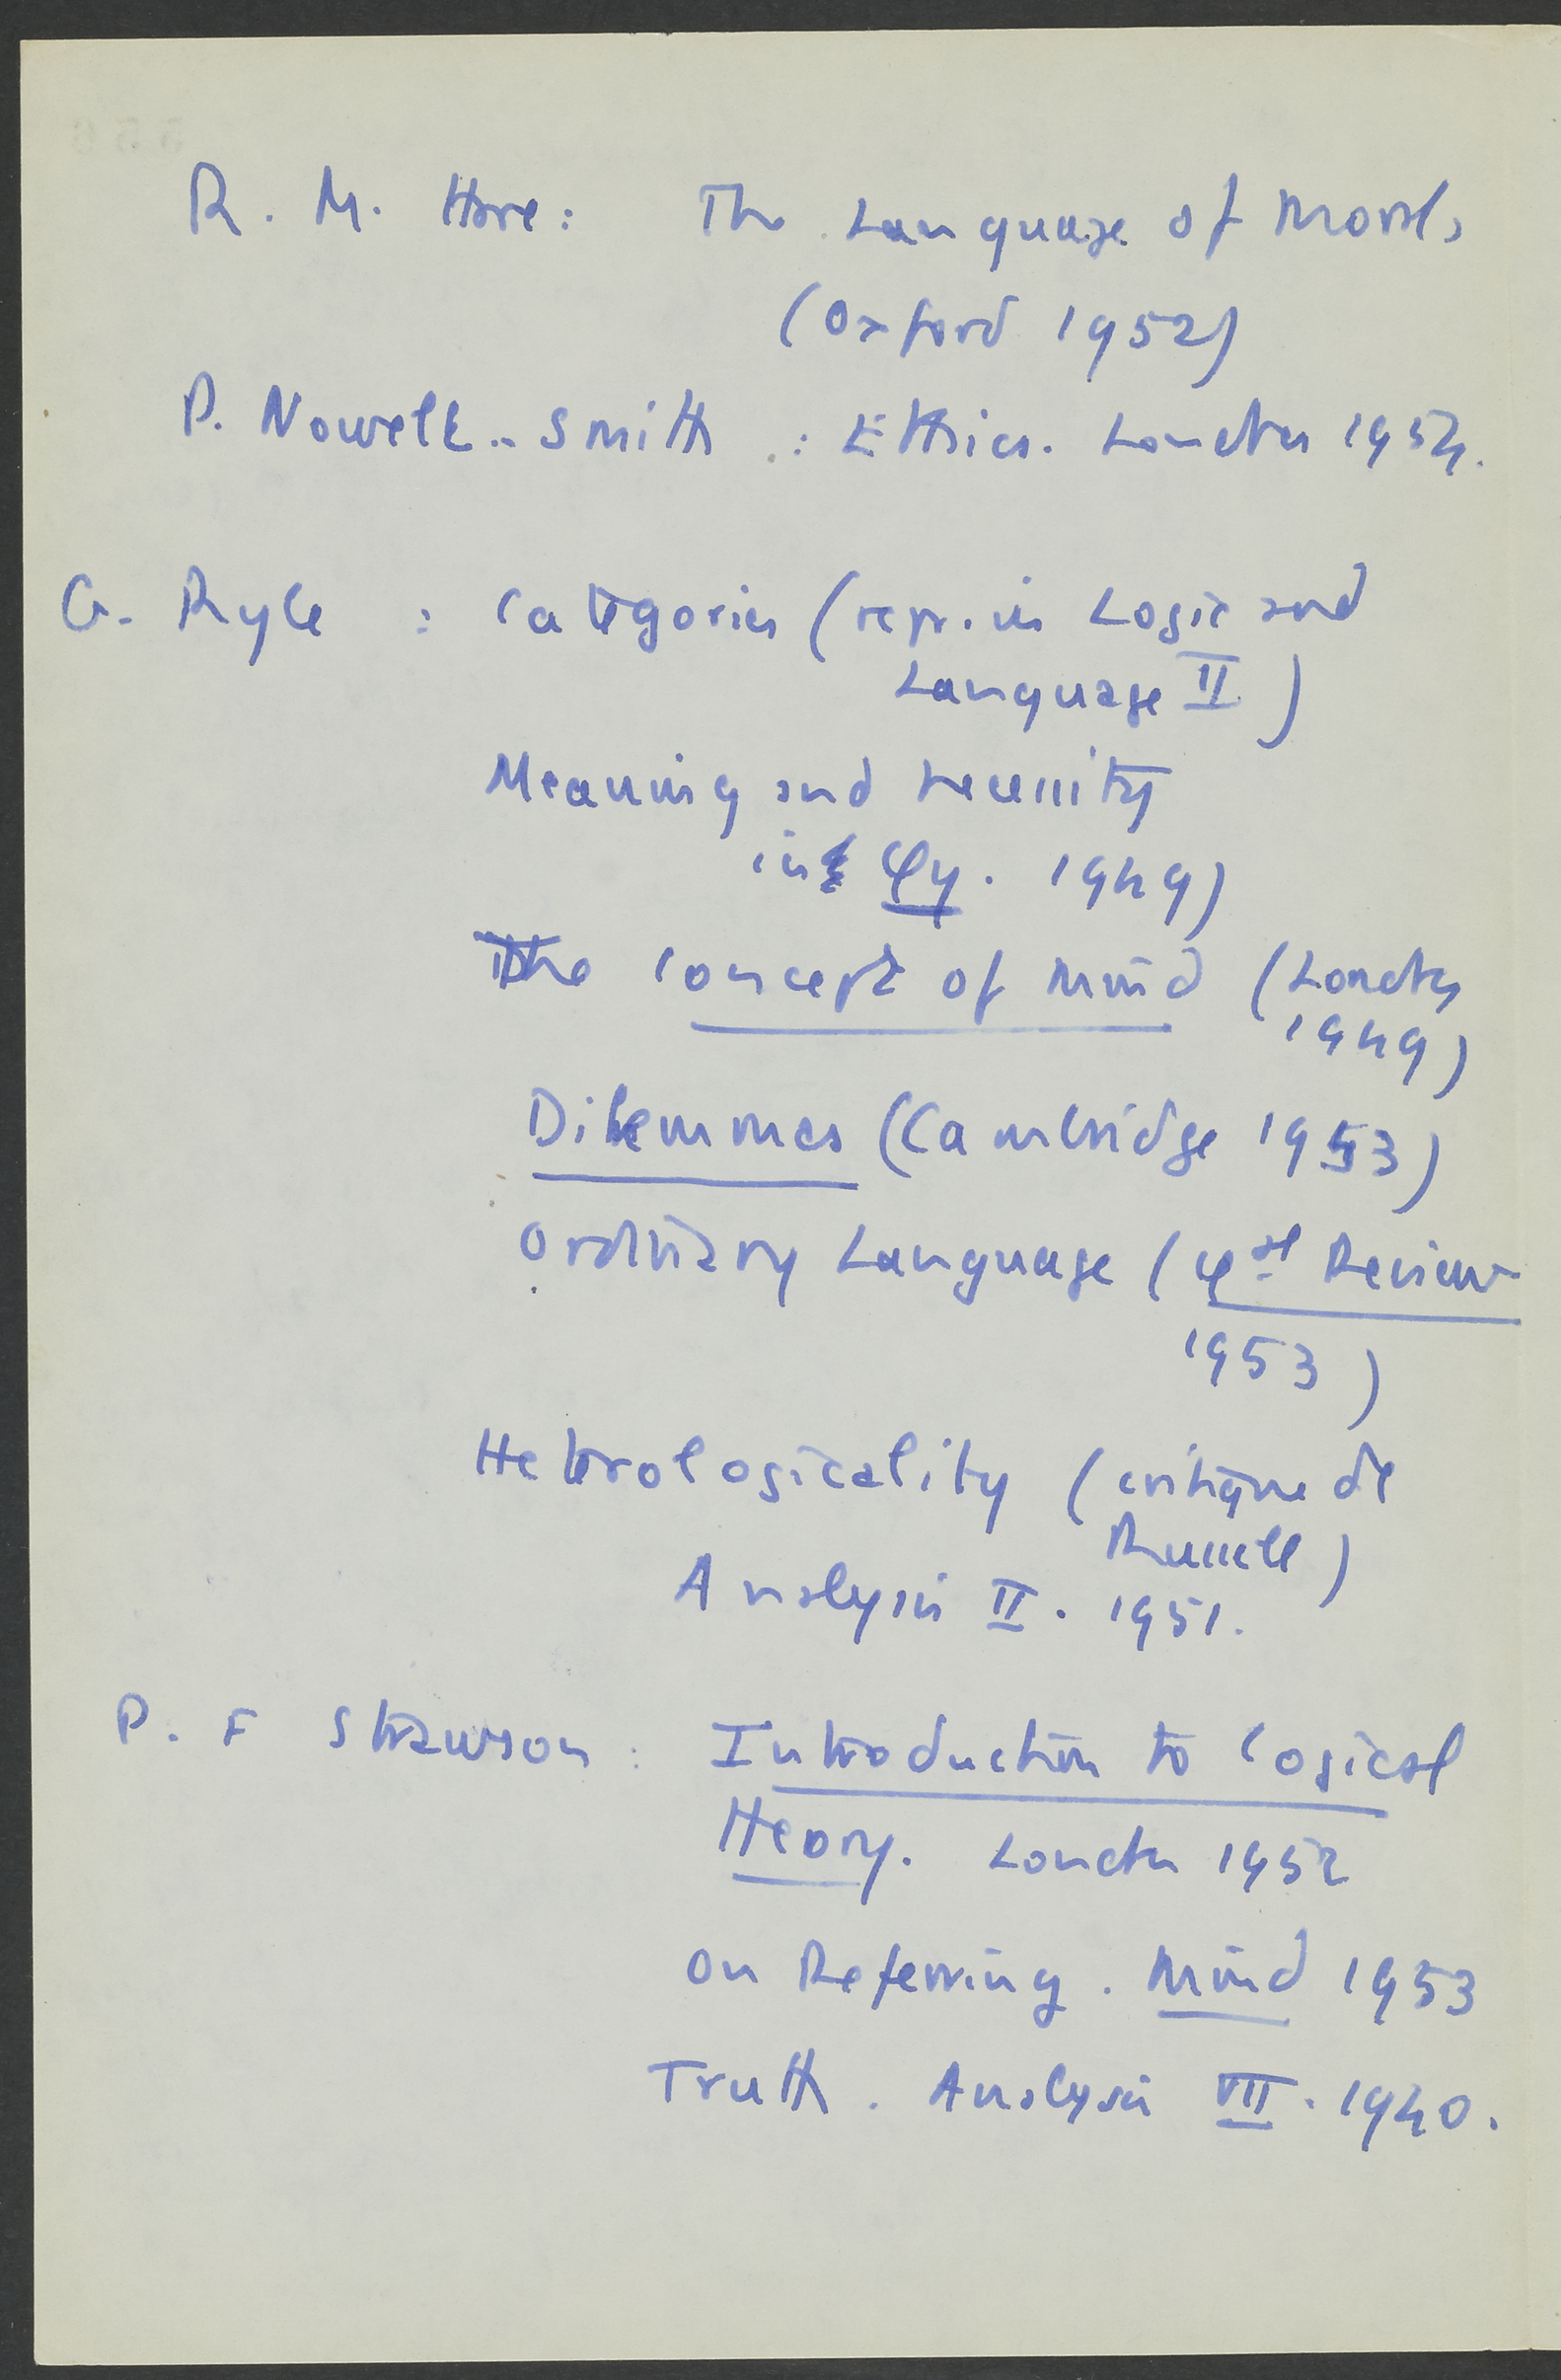 R. M. Hare: The Language of Morals
(Oxford 1952)
P. Nowell-Smith : Ethics. London 1954.
G. Ryle : Categories (repr. in Logic and
Language II)
Meaning and necessity
in φy. 1949)
The Concept of Mind (London
1949)
Dilemmas (Cambridge 1953)
Ordinary Language (φal Review
1953)
Heterologicality (critique de
Russell)
Analysis II. 1951.
P. F Strawson : Introduction to logical
theory. London 1952
On Referring. Mind 1953
Truth. Analysis VII. 1940.